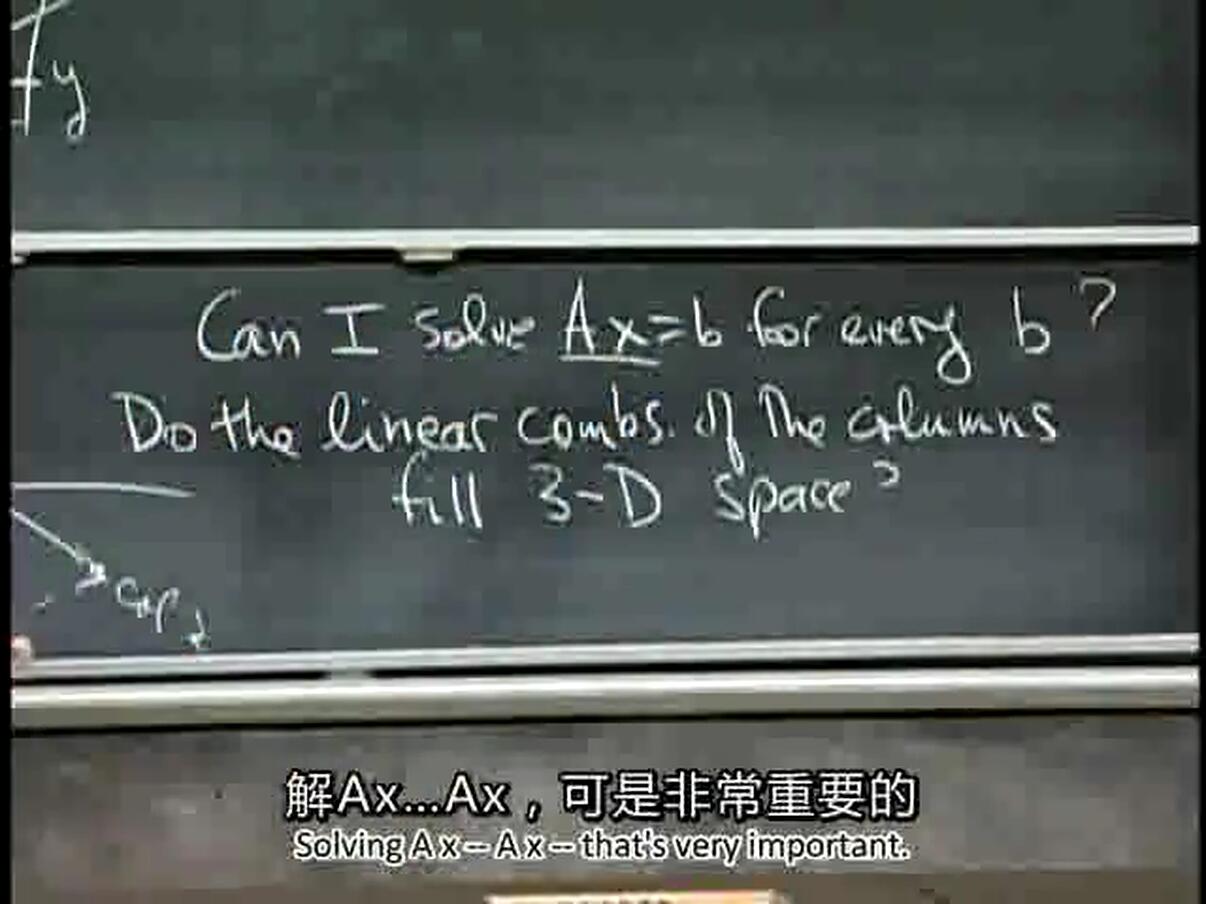 y
Can I solve Ax=b for every b?
Do the linear combs. of the columns
fill 3-D space?
解Ax...Ax，可是非常重要的
Solving A x -- A x -- that's very important.